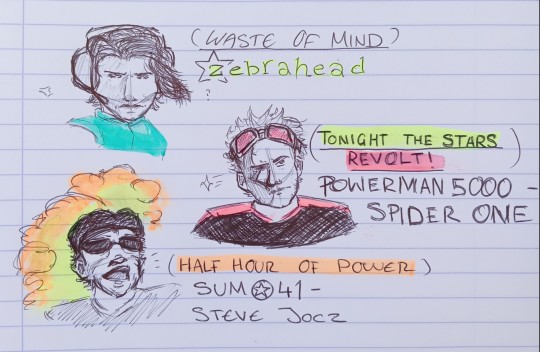 (WASTE OF MIND)
zebrahead
?
(TONIGHT THE STARS
REVOLT!)
POWERMAN 5000 -
SPIDER ONE
(HALF HOUR OF POWER)
SUM 41 -
STEVE JOCZ